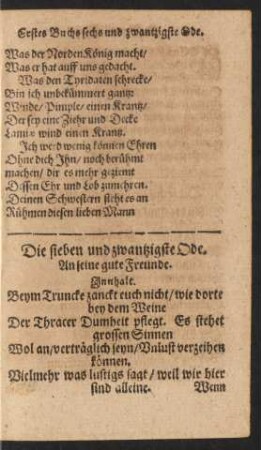 Erstes Buchs sechs und zwantzigste Ode.
Was der Norden König macht/
Was er hat auff uns gedacht.
Was den Tyridaten schrecke/
Bin ich unbekümmert gantz:
Winde/ Pimple/ einen Krantz/
Der sey eine Ziehr und Decke
Lamiæ wind einen Krantz.
Ich werd wenig können Ehren
Ohne dich Ihn/ noch berühmt
machen/ dir es mehr geziemt
Dessen Ehr und Lob zumehren.
Deinen Schwestern steht es an
Rühmen diesen lieben Mann
Die sieben und zwantzigste Ode.
An seine gute Freunde.
Innhalt.
Beym Truncke zanckt euch nicht/ wie dorte
bey dem Weine
Der Thracer Dumheit pflegt. Es stehet
grossen Sinnen
Wol an/ verträglich seyn/ Unlust verzeihen
können.
Vielmehr was lustigs sagt/ weil wir hier
sind alleine.
Wenn